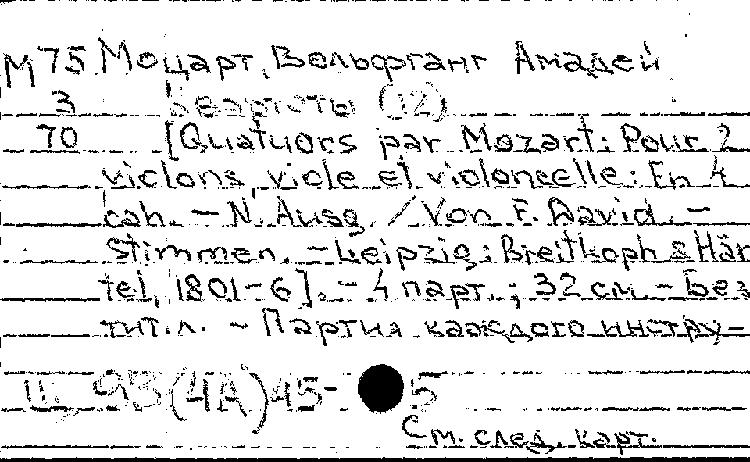 М75 Моцарт, Вольфганг Амадей
3 Квартеты (12)
70 [Quatuors par Mozart: Pour 2
violons, viole et violoncelle: En 4
cah. – N. Ausg. / Von F. David. –
Stimmen. – Leipzig: Breitkoph & Här
tel, 1801-6]. – 4 парт.; 32 см. – Без
тит. л. – Партия каждого инстру-
93(4А)45- 5
См. след. карт.